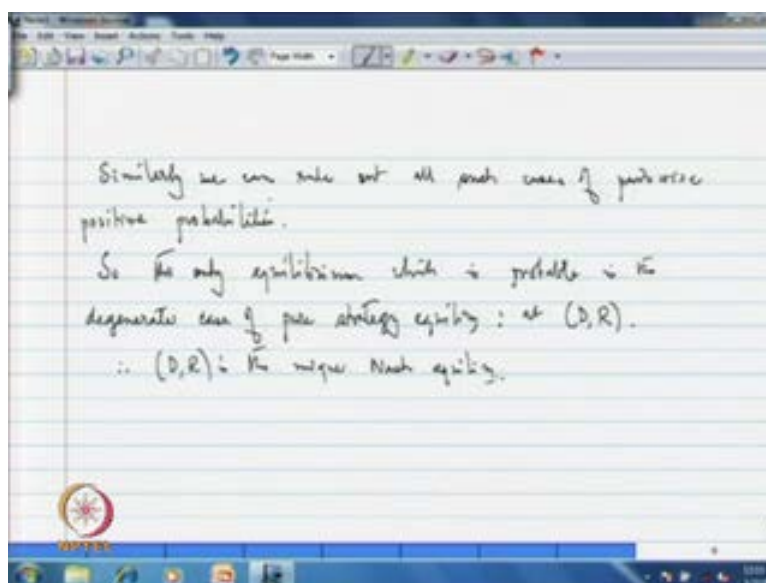 Note1 - Windows Journal
File Edit View Insert Actions Tools Help
Page Width
Similarly we can rule out all such cases of pairwise
positive probabilities.
So the only equilibrium which is probable is the
degenerate case of pure strategy equilibm : at (D,R).
∴ (D,R) is the unique Nash equilibm.
NPTEL